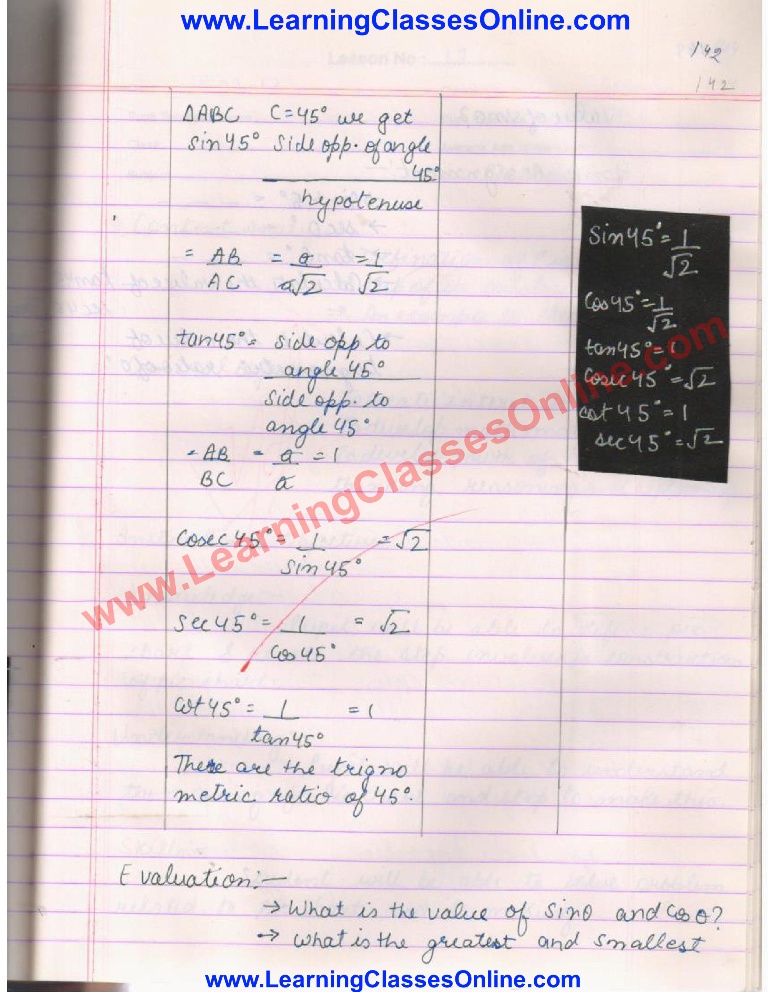 www.LearningClassesOnline.com
142
142
ΔABC C=45° we get
sin45° side opp. of angle
45°
hypotenuse
= AB = a = 1
AC a√2 √2
tan45° = side opp to
angle 45°
side opp. to
angle 45°
= AB = a = 1
BC a
Cosec 45° = 1 = √2
sin 45°
sec 45° = 1 = √2
cos 45°
cot 45° = 1 = 1
tan 45°
These are the trigno
metric ratio of 45°.
Sin 45° = 1
√2
Cos 45° = 1
√2
tan 45° = 1
Cosec 45° = √2
cot 45° = 1
sec 45° = √2
www.LearningClassesOnline.com
Evaluation:—
→ What is the value of sinθ and cosθ?
→ What is the greatest and smallest
www.LearningClassesOnline.com